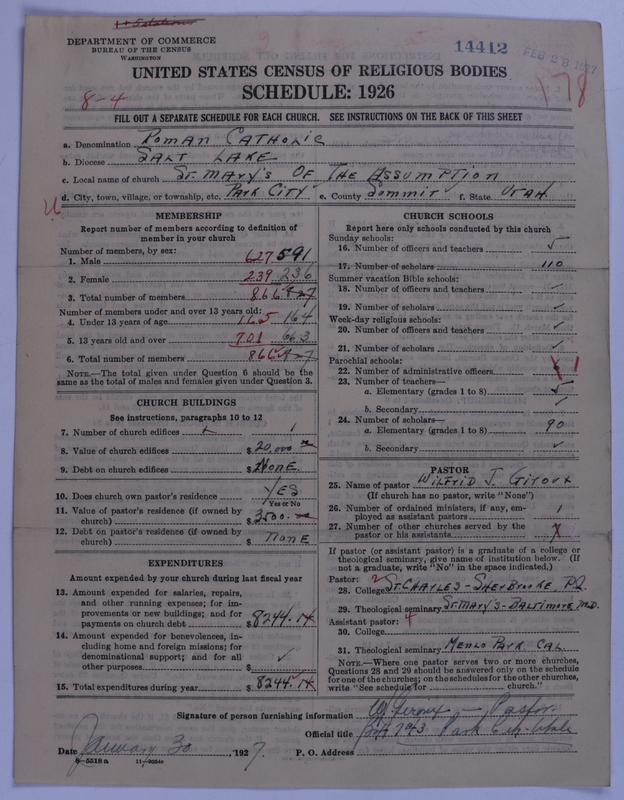 DEPARTMENT OF COMMERCE
BUREAU OF THE CENSUS
WASHINGTON
14412
FEB 28 1927
178
UNITED STATES CENSUS OF RELIGIOUS BODIES
SCHEDULE: 1926
8-4
FILL OUT A SEPARATE SCHEDULE FOR EACH CHURCH. SEE INSTRUCTIONS ON THE BACK OF THIS SHEET
a. Denomination ROMAN CATHOLIC
b. Diocese SALT LAKE
c. Local name of church ST. MARY'S OF THE ASSUMPTION
d. City, town, village, or township, etc. PARK CITY e. County SUMMIT f. State UTAH
MEMBERSHIP
Report number of members according to definition of
member in your church
Number of members, by sex:
1. Male 627 591
2. Female 239 236
3. Total number of members 866 827
Number of members under and over 13 years old:
4. Under 13 years of age 165 164
5. 13 years old and over 701 663
6. Total number of members 866 827
NOTE.—The total given under Question 6 should be the
same as the total of males and females given under Question 3.
CHURCH BUILDINGS
See instructions, paragraphs 10 to 12
7. Number of church edifices 1
8. Value of church edifices $ 20,000
9. Debt on church edifices $ NONE
10. Does church own pastor's residence YES
Yes or No
11. Value of pastor's residence (if owned by
church) $ 3500.
12. Debt on pastor's residence (if owned by
church) $ NONE
EXPENDITURES
Amount expended by your church during last fiscal year
13. Amount expended for salaries, repairs,
and other running expenses; for im-
provements or new buildings; and for
payments on church debt $ 8244.14
14. Amount expended for benevolences, in-
cluding home and foreign missions; for
denominational support; and for all
other purposes $ ✓
15. Total expenditures during year $ 8244.14
CHURCH SCHOOLS
Report here only schools conducted by this church
Sunday schools:
16. Number of officers and teachers 5
17. Number of scholars 110
Summer vacation Bible schools:
18. Number of officers and teachers ✓
19. Number of scholars ✓
Week-day religious schools:
20. Number of officers and teachers ✓
21. Number of scholars ✓
Parochial schools:
22. Number of administrative officers 1
23. Number of teachers—
a. Elementary (grades 1 to 8) 5
b. Secondary ✓
24. Number of scholars—
a. Elementary (grades 1 to 8) 90
b. Secondary ✓
PASTOR
25. Name of pastor WILFRID J. GIROUX
(If church has no pastor, write "None")
26. Number of ordained ministers, if any, em-
ployed as assistant pastors 1
27. Number of other churches served by the
pastor or his assistants
If pastor (or assistant pastor) is a graduate of a college or
theological seminary, give name of institution below. (If
not a graduate, write "No" in the space indicated.)
Pastor: 2
28. College ST. CHARLES - SHERBROOKE, P.Q.
29. Theological seminary ST. MARY'S - BALTIMORE M.D.
Assistant pastor: 4
30. College
31. Theological seminary MENLO PARK CAL.
NOTE.—Where one pastor serves two or more churches,
Questions 28 and 29 should be answered only on the schedule
for one of the churches; on the schedules for the other churches,
write "See schedule for church."
Signature of person furnishing information W J Giroux — Pastor.
Official title
P. O. Address Box 743 Park City Utah
Date January 30, 1927.
8-5518a